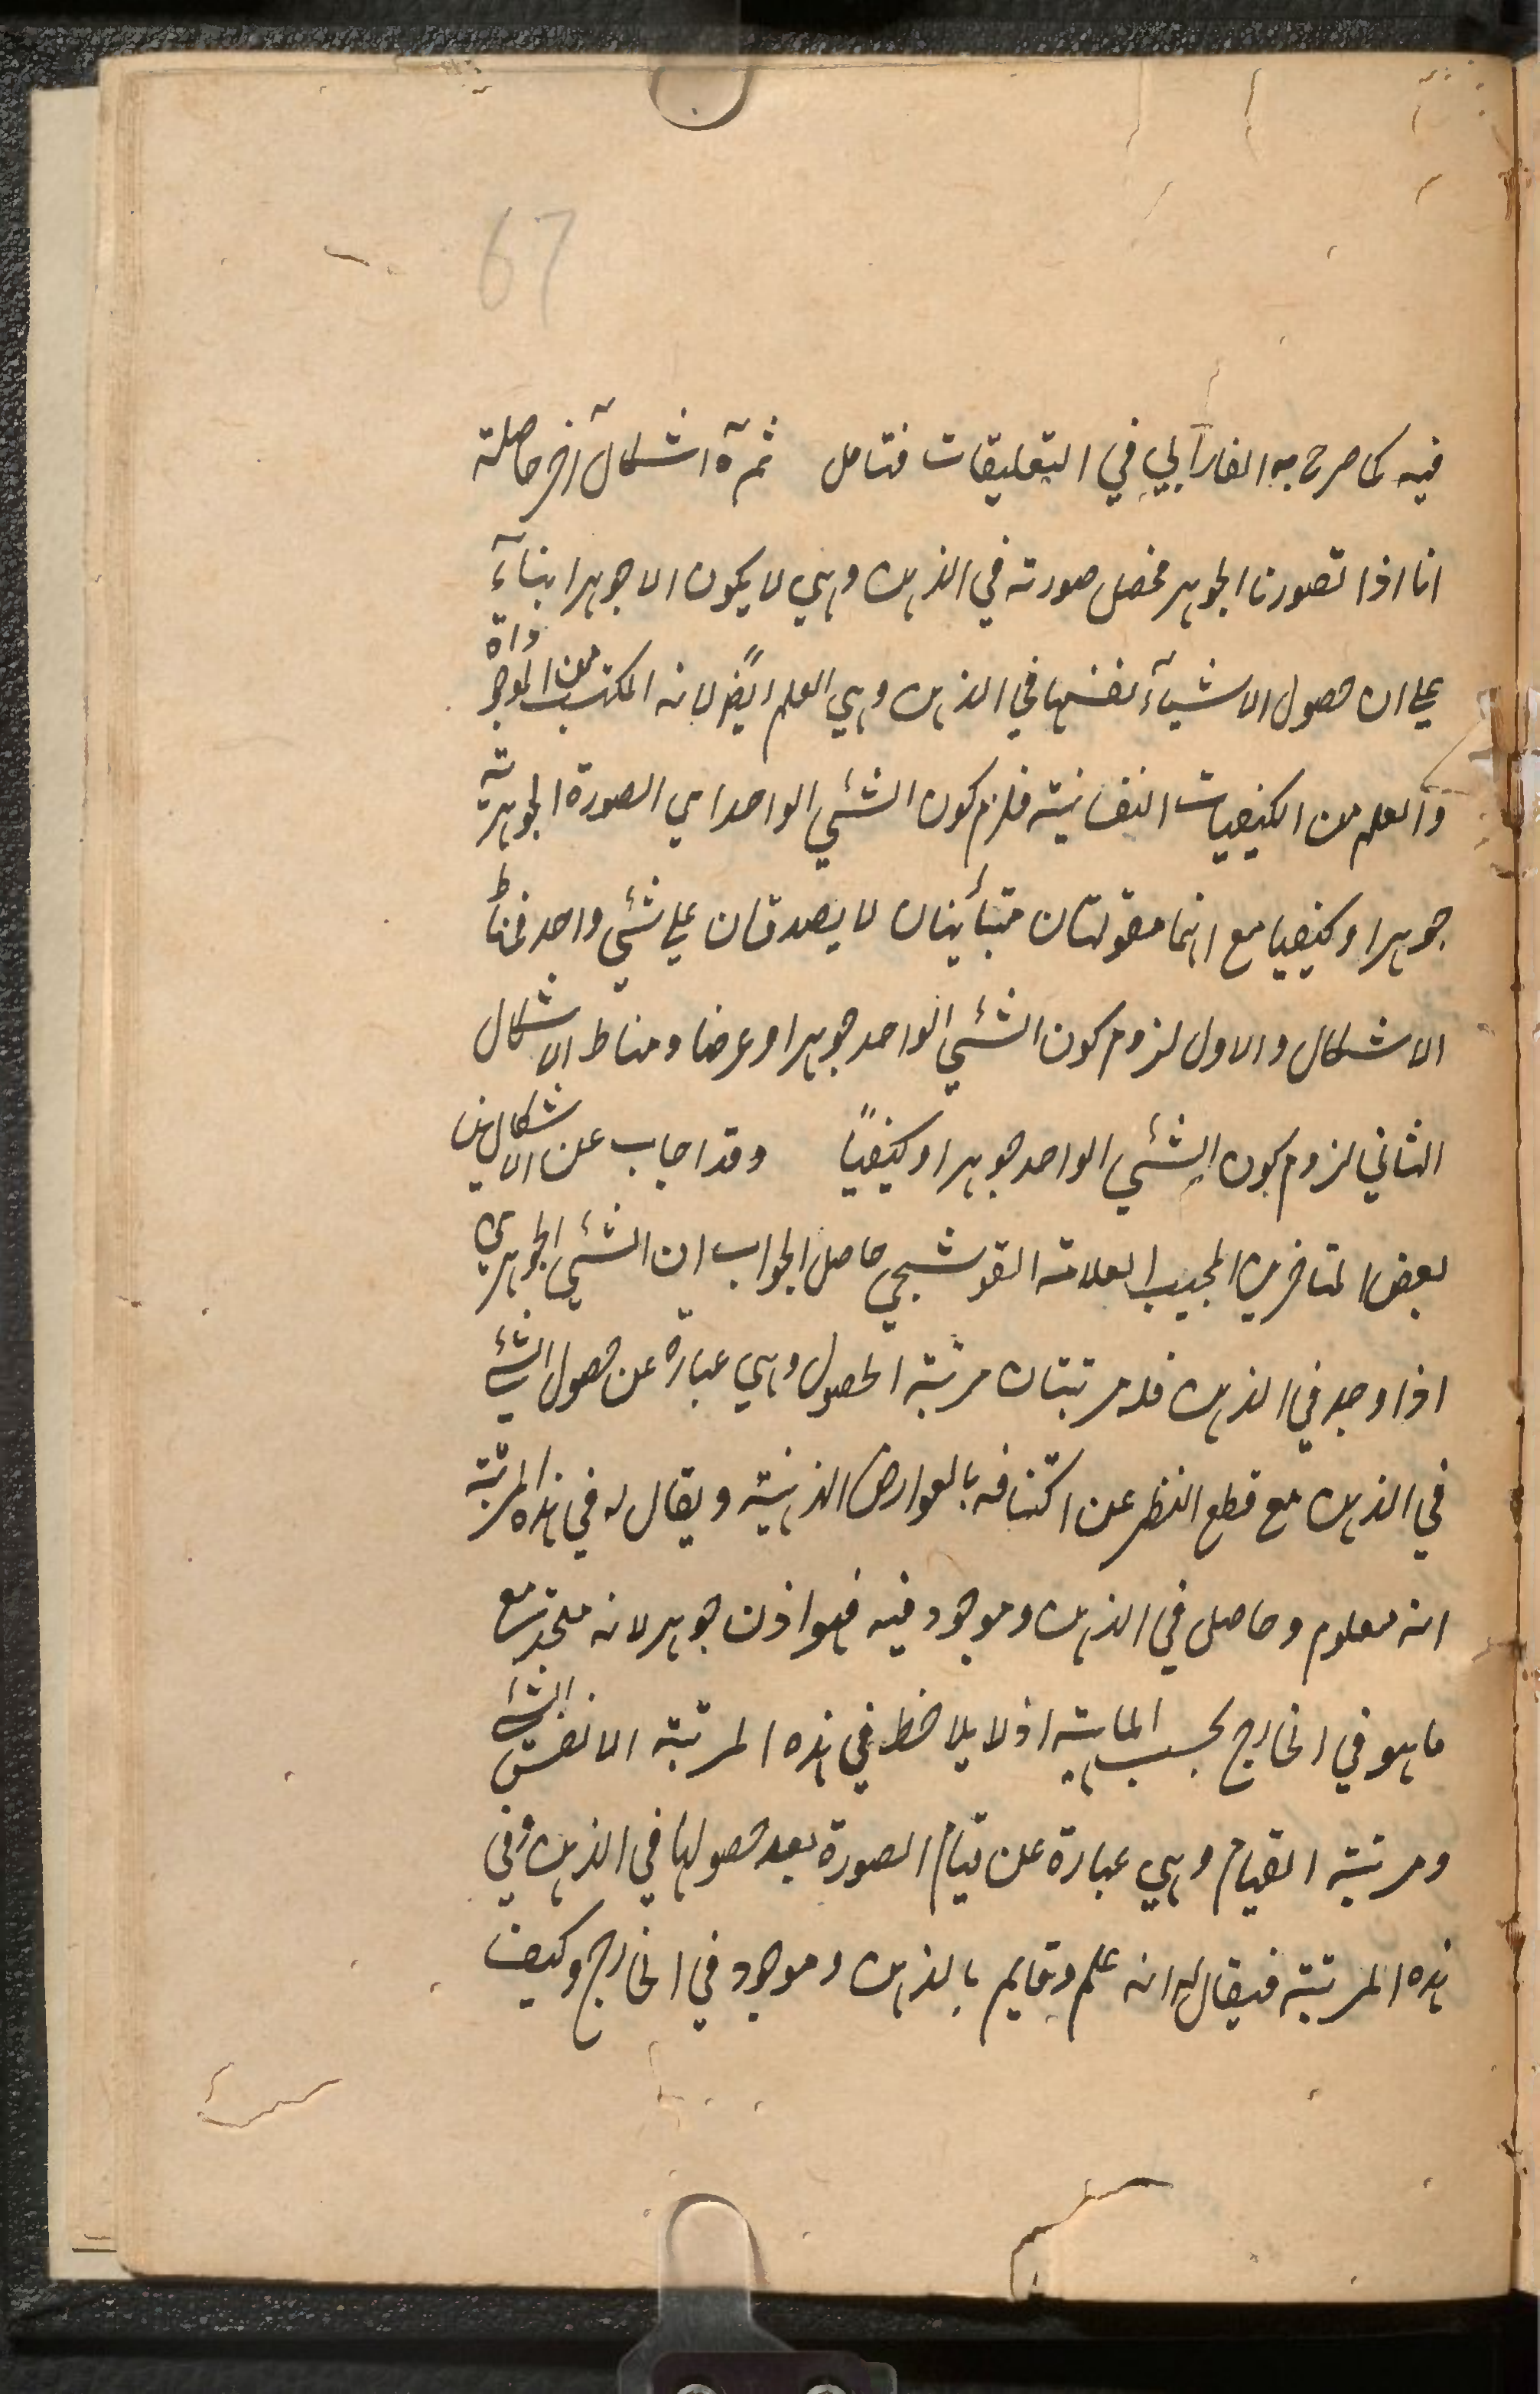 67
فيه كما صرح به الفارابي في التعليقات فتامل ثمة اشكال آخر حاصلة
انا اذا تصورنا الجوهر فحصل صورته في الذهن وهي لا يكون الا جوهرا بناءً
على ان حصول الاشياء بانفسها في الذهن وهي العلم ايضًا لانه المكتسب من الموجودات
والعلم من الكيفيات النفسانية فلزم كون الشئي الواحد اي الصورة الجوهرية
جوهرا وكيفيا مع انهما مقولتان متبائينان لا يصدقان على شئي واحد فمناط
الاشكال والاول لزوم كون الشئي الواحد جوهرا وعرضا ومناط الاشكال
الثاني لزوم كون الشئي الواحد جوهرا وكيفيًا وقد اجاب عن الاشكالين
بعض المتاخرين المجيب العلامة القوشجي حاصل الجواب ان الشئي الجوهري
اذا وجد في الذهن فله مرتبتان مرتبة الحصول وهي عبارة عن حصول الشئي
في الذهن مع قطع النظر عن اكتنافه بالعوارض الذهنية ويقال له في هذه المرتبة
انه معلوم وحاصل في الذهن وموجود فيه فهو اذن جوهر لانه متحد مع
ما هو في الخارج بحسب الماهية اذ لا يلاحظ في هذه المرتبة الا نفس الشئي
ومرتبة القيام وهي عبارة عن قيام الصورة بعد حصولها في الذهن وفي
هذه المرتبة فيقال له انه علم وقايم بالذهن وموجود في الخارج وكيف